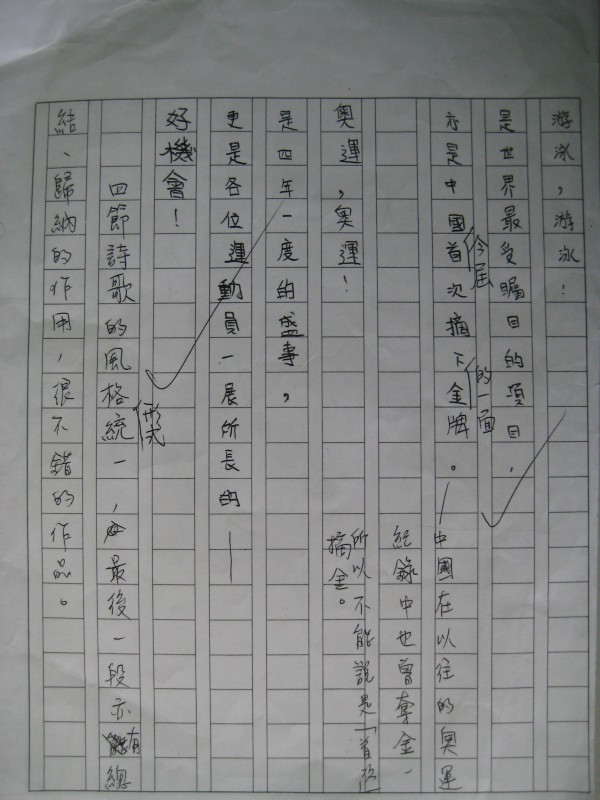 游泳，游泳！
是世界最受矚目的項目，
今屆
亦是中國首次摘下金牌。—中國在以往的奧運
的一面
紀錄中也曾奪金，
所以不能說是「首次
摘金。
奧運，奧運！
是四年一度的盛事，
更是各位運動員一展所長的——
好機會！
四節詩歌的風格統一，最後一段亦有總
形式
結、歸納的作用，很不錯的作品。